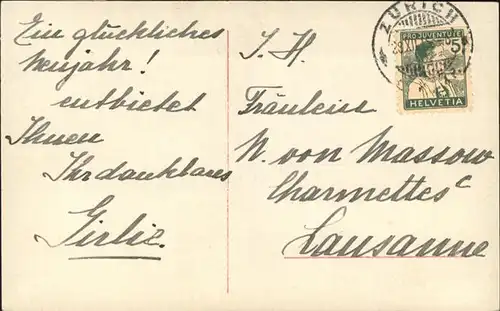 Ein glückliches
Neujahr!
entbietet
Ihnen
Ihr dankbares
Girlie.
I. H.
Fräulein
N. von Massow
Charmettes
Lausanne
ZÜRICH
PRO JUVENTUTE
5
HELVETIA